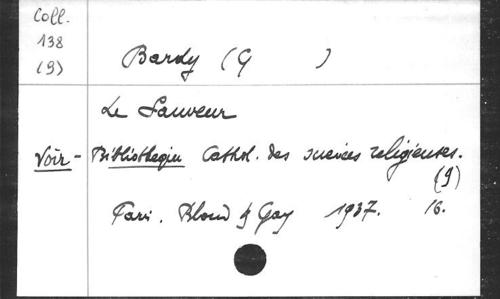 Coll.
138
(9)
Bardy (G )
Le Sauveur
Voir - Bibliothèque Cathol. des sciences religieuses.
(9)
Paris. Bloud & Gay 1937. 16.